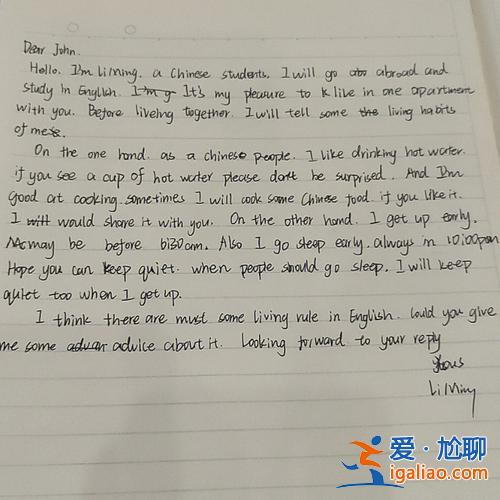 Dear John.
Hello. I'm LiMing. a Chinese students. I will go abroad and
study in English. It's my pleasure to live in one apartment
with you. Before liveing together. I will tell some living habits
of me.
On the one hand. as a chinese people. I like drinking hot water.
if you see a cup of hot water please don't be surprised. And I'm
Good at cooking. sometimes I will cook some Chinese food. if you like it.
I would share it with you. On the other hand. I get up early.
may be before 6:30am. Also I go sleep early. always in 10:00pm
Hope you can keep quiet. when people should go sleep. I will keep
quiet too when I get up.
I think there are must some living rule in English. Could you give
me some advice about it. Looking forward to your reply
LiMing
爱·尬聊
igaliao.com